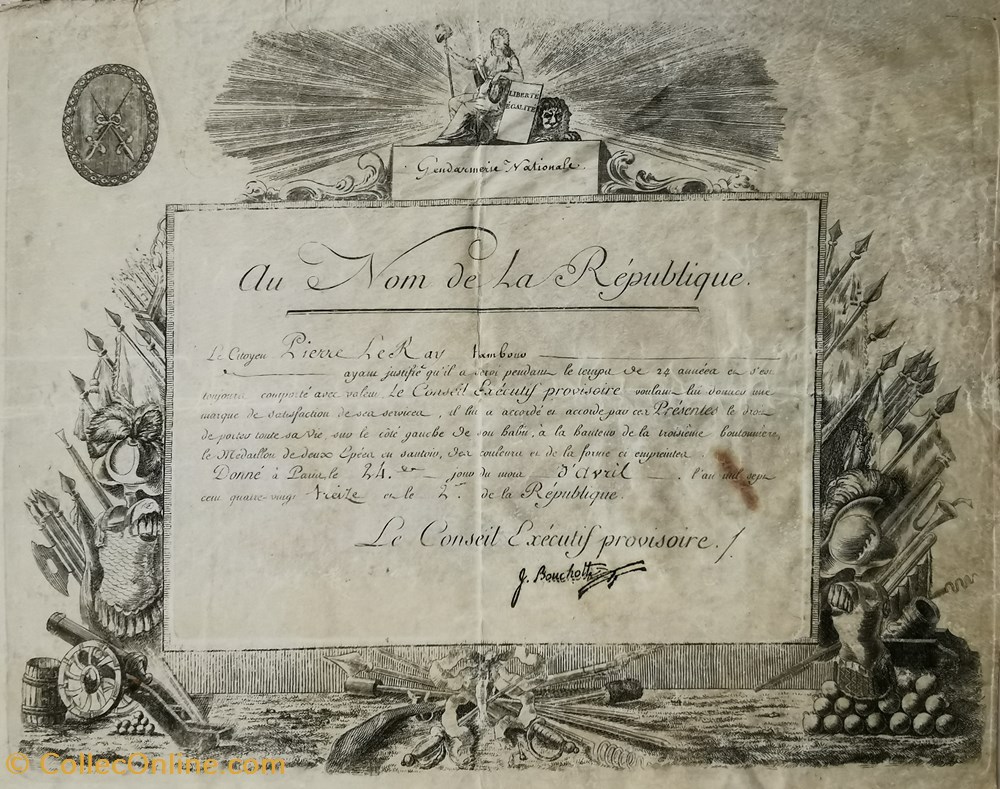 LIBERTÉ
EGALITÉ
Gendarmerie Nationale
Au Nom de La République.
Le Citoyen Pierre LeRay
ayant justifié qu'il a servi pendant le temps de 24 années et s'est
toujours comporté avec valeur, Le Conseil Exécutif provisoire voulant lui donner une
marque de satisfaction de ses services, il lui a accordé et accorde par ces Présentes le droit
de porter toute sa Vie, sur le côté gauche de son habit, à la hauteur de la troisième boutonnière,
le Médaillon de deux Epées en sautoir, des couleurs et de la forme ci empreintes.
Donné à Paris le 24. jour du mois d'Avril l'an mil sept
cent quatre-vingt treize et le 2. de la République.
Le Conseil Exécutif provisoire.
J. Bouchotte
© CollecOnline.com